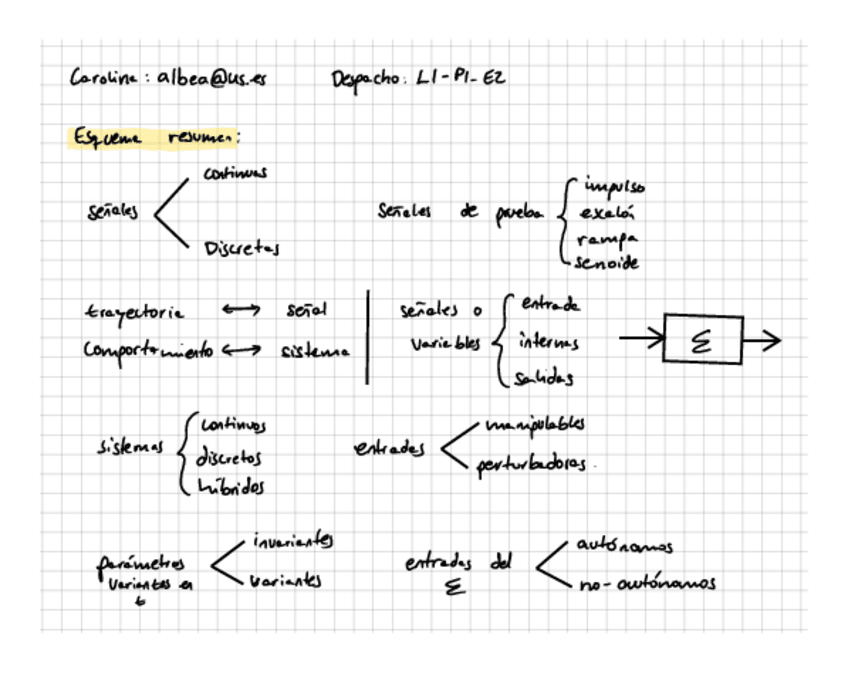 Carolina: albea@us.es Despacho: L1-P1-E2
Esquema resumen:
señales
continuas
Discretas
Señales de prueba
impulso
escalón
rampa
senoide
trayectoria ↔ señal
Comportamiento ↔ sistema
señales o
variables
entrada
internas
salidas
Σ
sistemas
continuos
discretos
híbridos
entradas
manipulables
perturbadoras.
parámetros
variantes en
t
invariantes
variantes
entradas del
Σ
autónomos
no-autónomos